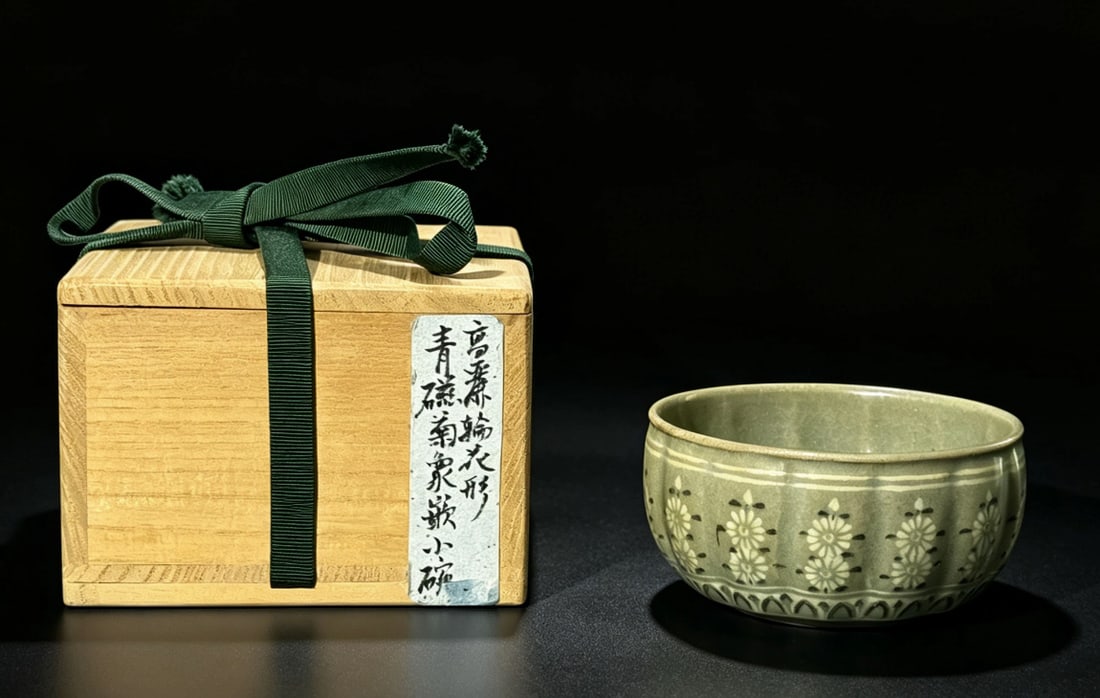 高麗輪花形
青磁菊象嵌小碗